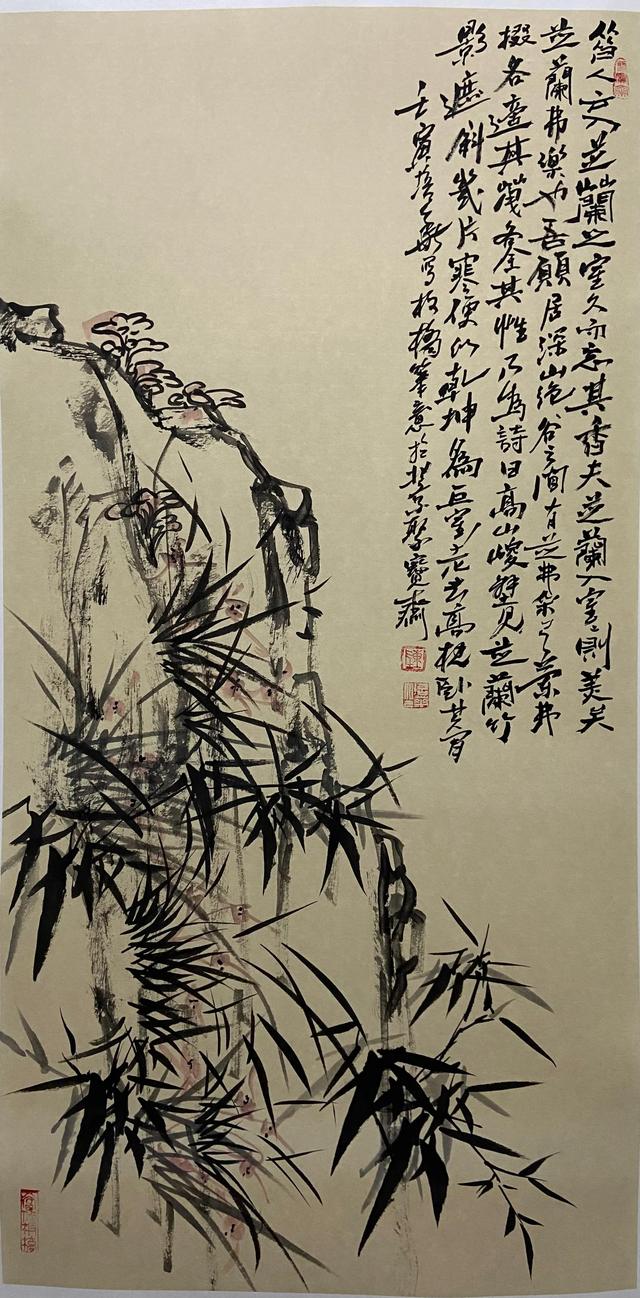 昔人云入芝蘭之室久而忘其香夫芝蘭入室則美矣
芝蘭弗樂也吾願居深山絶谷之間有芝弗采有蘭弗
掇各適其天各全其性乃為詩曰高山峻壁見芝蘭竹
影遮斜幾片寒便以乾坤為巨室老夫高枕卧其間
壬寅寫板橋筆意於北京聚寶齋